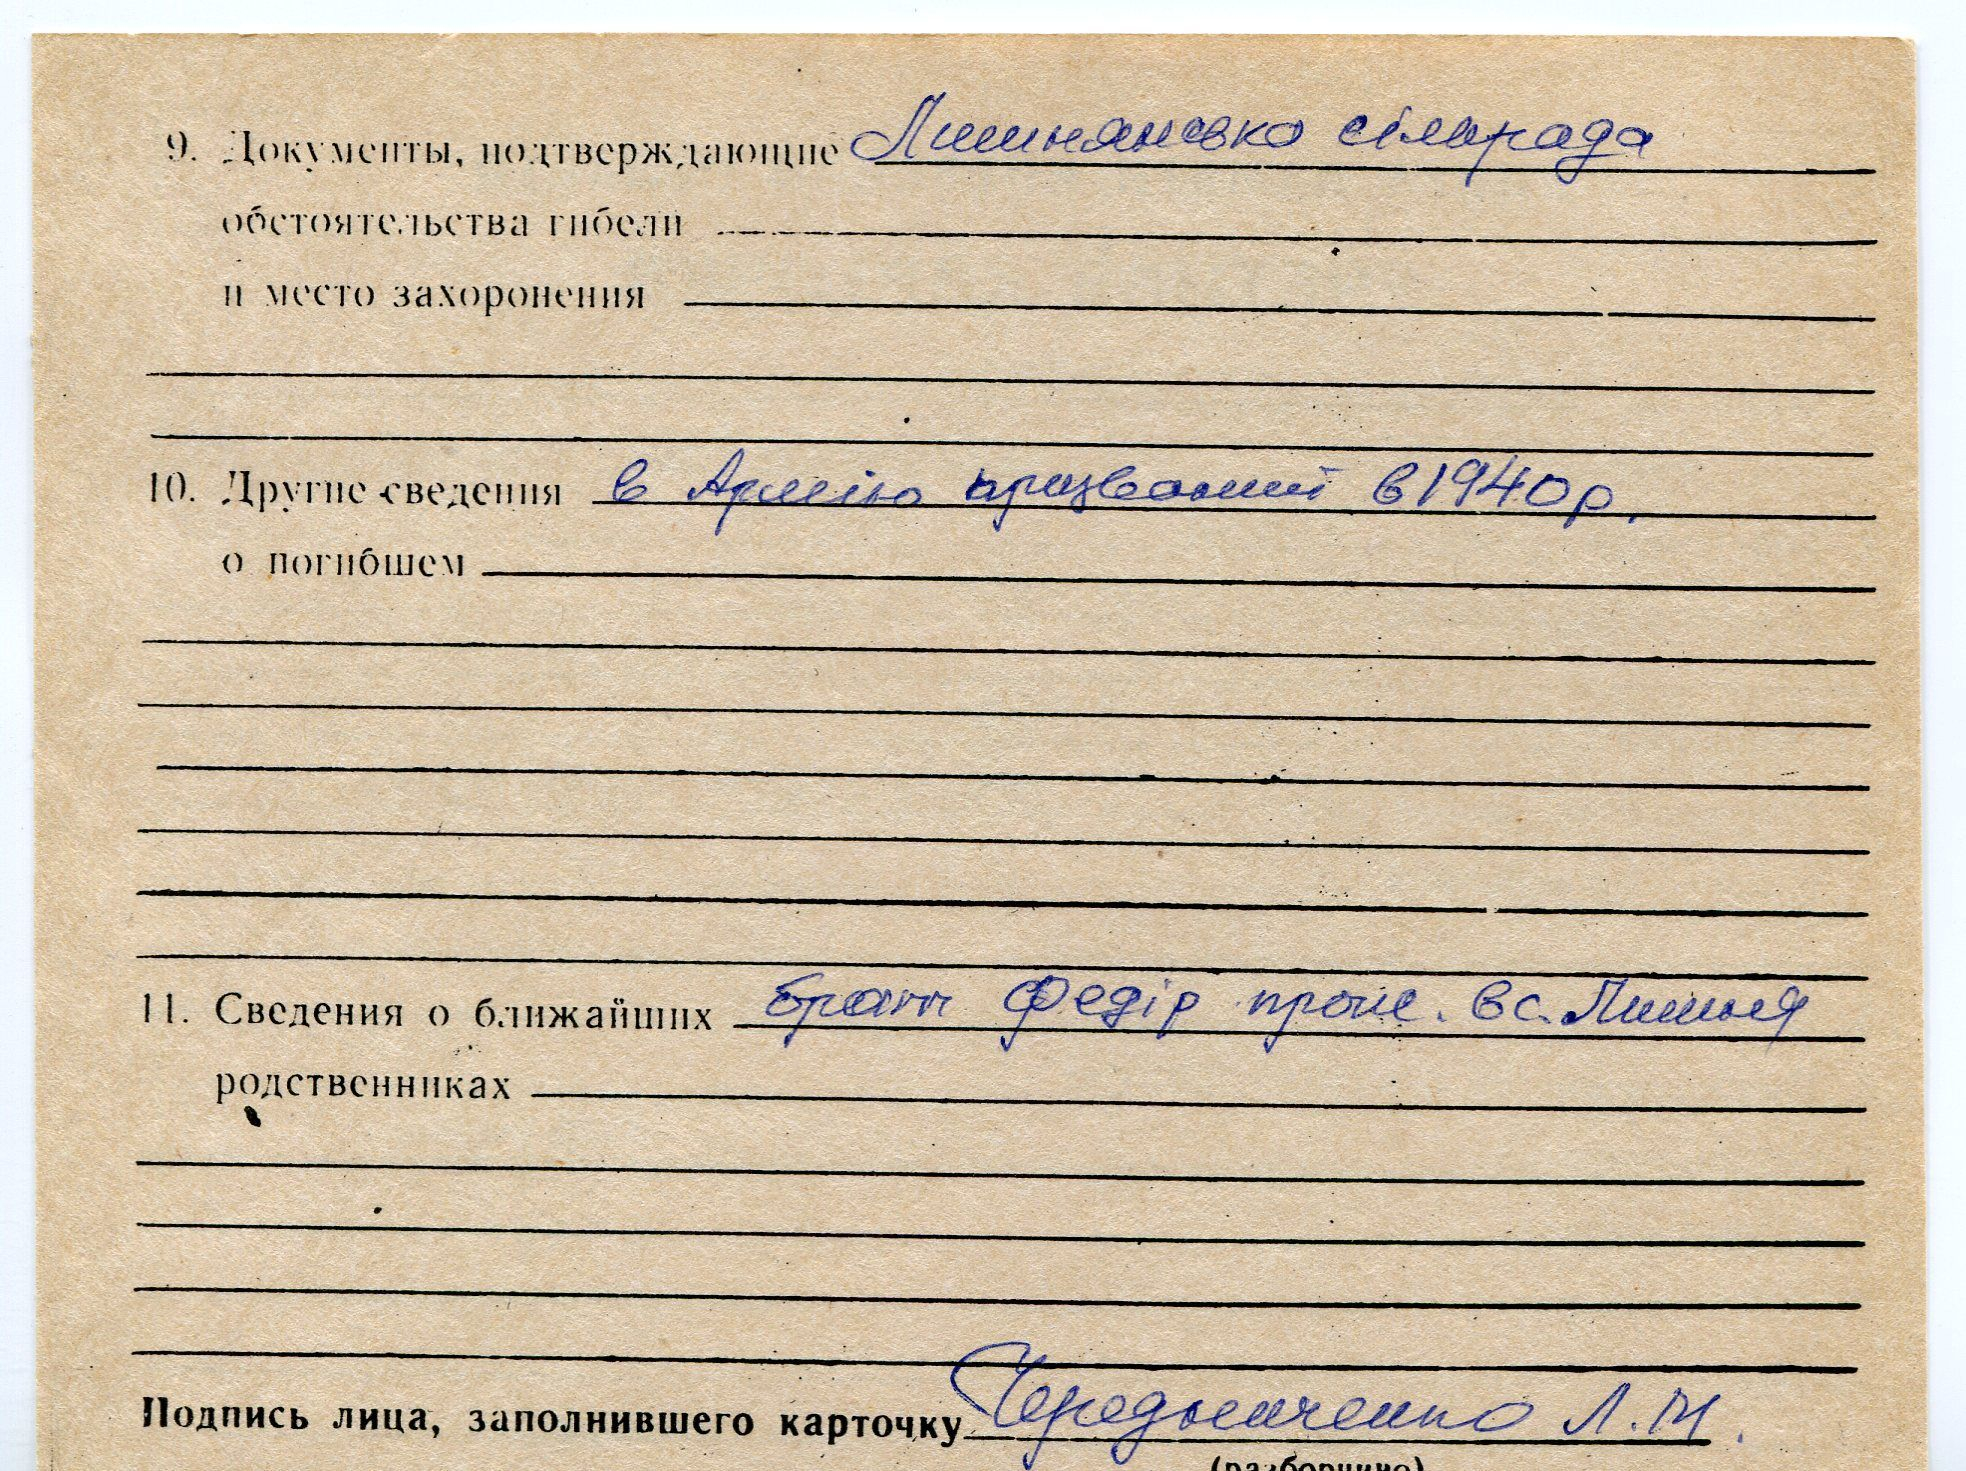 9. Документы, подтверждающие Лишнянська сільрада
обстоятельства гибели
и место захоронения
10. Другие сведения в Армію призваний в 1940 р.
о погибшем
11. Сведения о ближайших брат Федір прож. в с. Лишня
родственниках
Подпись лица, заполнившего карточку Чередниченко Л. М.
(разборчиво)